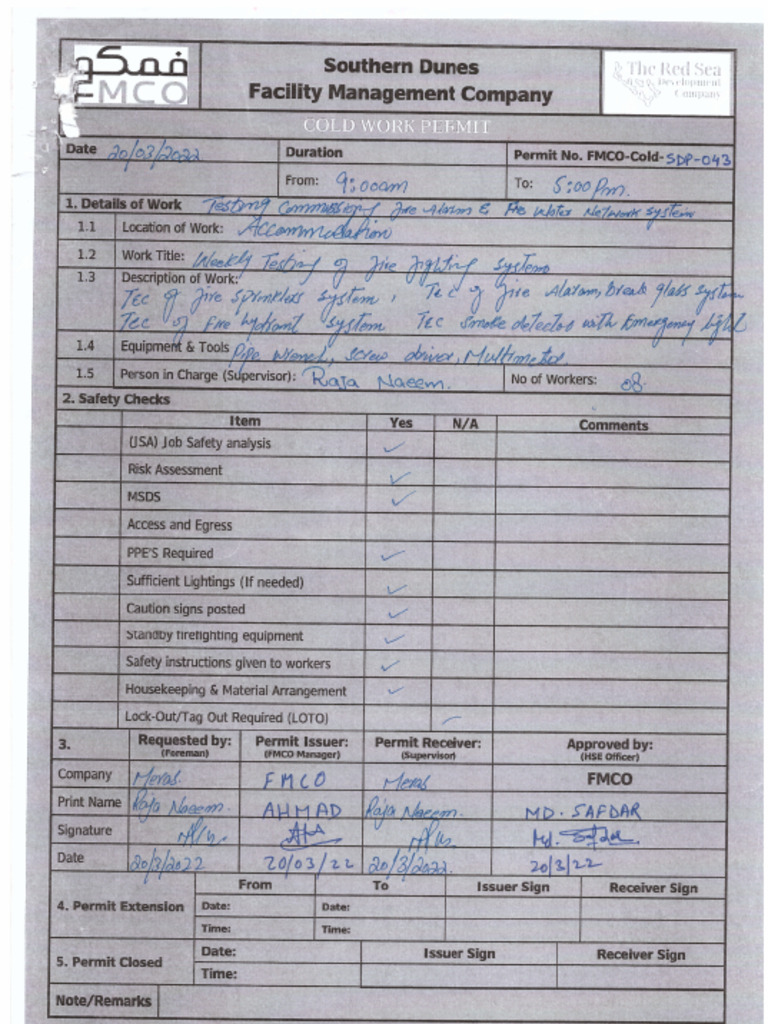 فمكو
FMCO
Southern Dunes
Facility Management Company
The Red Sea
Development
Company
COLD WORK PERMIT
Date 20/03/2022 Duration Permit No. FMCO-Cold-SDP-043
From: 9:00am To: 5:00 Pm.
1. Details of Work Testing Commissiong fire Alarm & Fire Water Network system
1.1 Location of Work: Accommodation
1.2 Work Title: Weekly Testing of fire fighting systems
1.3 Description of Work:
T&C of fire sprinklers system, T&C of fire Alaram, break glass system
T&C of fire hydrant system T&C smoke detector with Emergency light
1.4 Equipment & Tools pipe wrench, screw driver, Multimeter
1.5 Person in Charge (Supervisor): Raja Naeem. No of Workers: 08.
2. Safety Checks
Item Yes N/A Comments
(JSA) Job Safety analysis ✓
Risk Assessment ✓
MSDS ✓
Access and Egress
PPE'S Required ✓
Sufficient Lightings (If needed) ✓
Caution signs posted ✓
Standby firefighting equipment ✓
Safety instructions given to workers ✓
Housekeeping & Material Arrangement ✓
Lock-Out/Tag Out Required (LOTO)
3. Requested by: Permit Issuer: Permit Receiver: Approved by:
(Foreman) (FMCO Manager) (Supervisor) (HSE Officer)
Company Meras FMCO Meras FMCO
Print Name Raja Naeem. AHMAD Raja Naeem. MD. SAFDAR
Signature Md. Safdar
Date 20/3/2022 20/03/22 20/3/2022. 20/3/22
From To Issuer Sign Receiver Sign
4. Permit Extension Date: Date:
Time: Time:
5. Permit Closed Date: Issuer Sign Receiver Sign
Time:
Note/Remarks